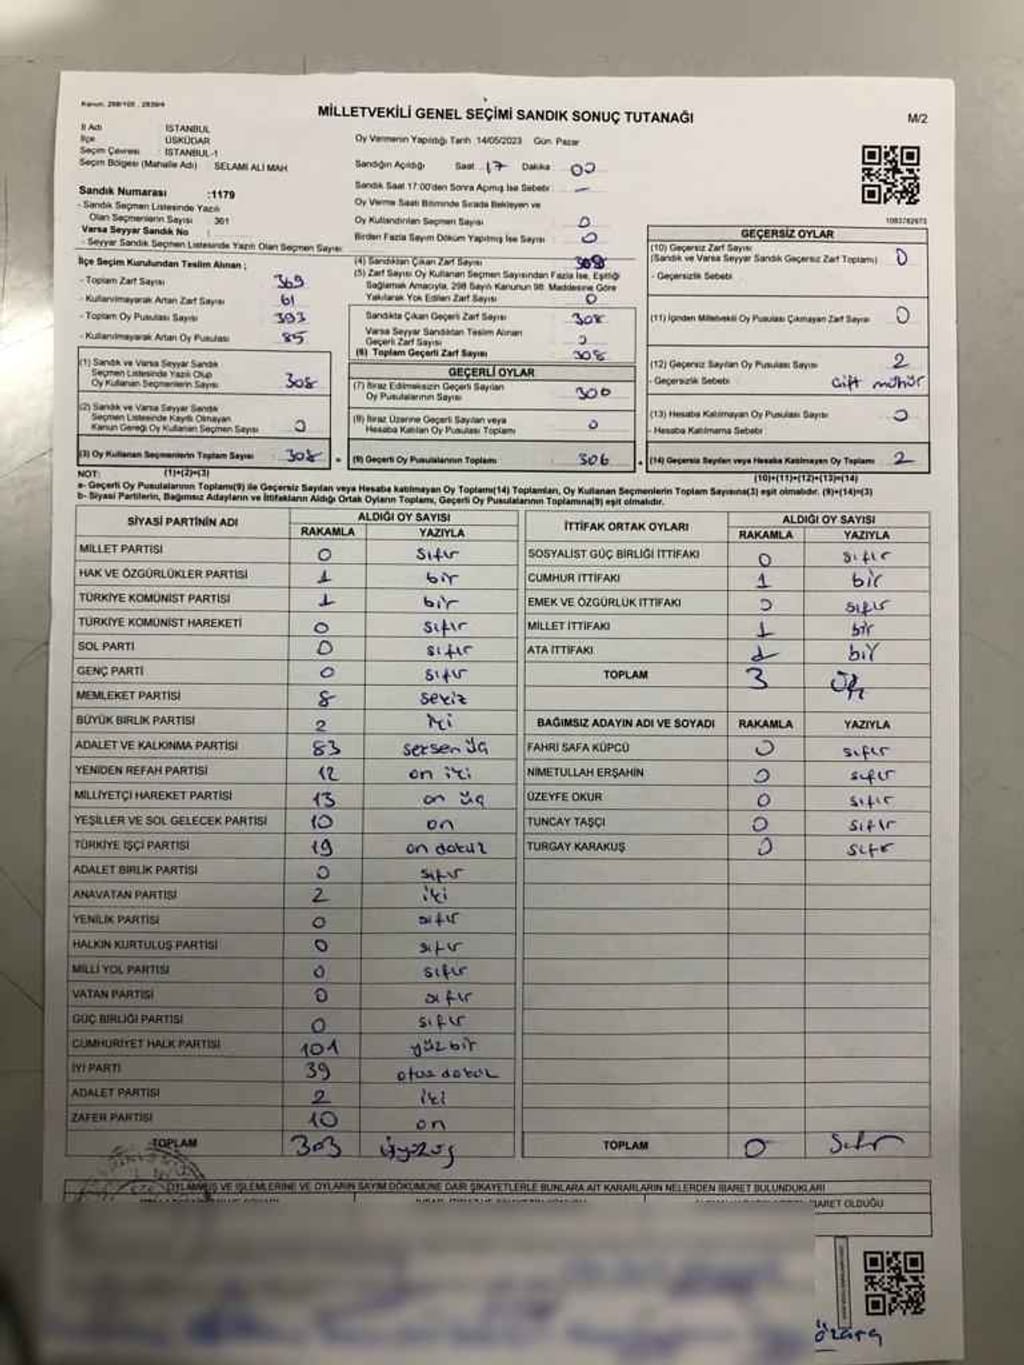 Kanun: 298/105 , 2839/4
MİLLETVEKİLİ GENEL SEÇİMİ SANDIK SONUÇ TUTANAĞI
M/2
İl Adı : İSTANBUL
İlçe : ÜSKÜDAR
Seçim Çevresi : İSTANBUL-1
Seçim Bölgesi (Mahalle Adı) : SELAMİ ALİ MAH
Oy Vermenin Yapıldığı Tarih 14/05/2023 Gün: Pazar
Sandığın Açıldığı Saat : 17 Dakika : 00
Sandık Saat 17:00'den Sonra Açılmış İse Sebebi : —
Oy Verme Saati Bitiminde Sırada Bekleyen ve
Oy Kullandırılan Seçmen Sayısı 0
Birden Fazla Sayım Döküm Yapılmış İse Sayısı : 0
Sandık Numarası :1179
- Sandık Seçmen Listesinde Yazılı
Olan Seçmenlerin Sayısı : 361
Varsa Seyyar Sandık No :
- Seyyar Sandık Seçmen Listesinde Yazılı Olan Seçmen Sayısı:
İlçe Seçim Kurulundan Teslim Alınan ;
- Toplam Zarf Sayısı : 369
- Kullanılmayarak Artan Zarf Sayısı : 61
- Toplam Oy Pusulası Sayısı : 393
- Kullanılmayarak Artan Oy Pusulası : 85
(1) Sandık ve Varsa Seyyar Sandık
Seçmen Listesinde Yazılı Olup
Oy Kullanan Seçmenlerin Sayısı : 308
(2) Sandık ve Varsa Seyyar Sandık
Seçmen Listesinde Kayıtlı Olmayan
Kanun Gereği Oy Kullanan Seçmen Sayısı : 0
(3) Oy Kullanan Seçmenlerin Toplam Sayısı : 308
(1)+(2)=(3)
(4) Sandıktan Çıkan Zarf Sayısı : 308
(5) Zarf Sayısı Oy Kullanan Seçmen Sayısından Fazla İse, Eşitliği
Sağlamak Amacıyla, 298 Sayılı Kanunun 98. Maddesine Göre
Yakılarak Yok Edilen Zarf Sayısı : 0
Sandıkta Çıkan Geçerli Zarf Sayısı : 308
Varsa Seyyar Sandıktan Teslim Alınan
Geçerli Zarf Sayısı : 0
(6) Toplam Geçerli Zarf Sayısı : 308
GEÇERLİ OYLAR
(7) İtiraz Edilmeksizin Geçerli Sayılan
Oy Pusulalarının Sayısı : 306
(8) İtiraz Üzerine Geçerli Sayılan veya
Hesaba Katılan Oy Pusulası Toplamı : 0
= (9) Geçerli Oy Pusulalarının Toplamı : 306
GEÇERSİZ OYLAR
(10) Geçersiz Zarf Sayısı
(Sandık ve Varsa Seyyar Sandık Geçersiz Zarf Toplamı) : 0
- Geçersizlik Sebebi :
(11) İçinden Milletvekili Oy Pusulası Çıkmayan Zarf Sayısı : 0
(12) Geçersiz Sayılan Oy Pusulası Sayısı : 2
- Geçersizlik Sebebi : Çift mühür
(13) Hesaba Katılmayan Oy Pusulası Sayısı : 0
- Hesaba Katılmama Sebebi :
+ (14) Geçersiz Sayılan veya Hesaba Katılmayan Oy Toplamı : 2
(10)+(11)+(12)+(13)=(14)
NOT:
a- Geçerli Oy Pusulalarının Toplamı(9) ile Geçersiz Sayılan veya Hesaba katılmayan Oy Toplamı(14) Toplamları, Oy Kullanan Seçmenlerin Toplam Sayısına(3) eşit olmalıdır. (9)+(14)=(3)
b- Siyasi Partilerin, Bağımsız Adayların ve İttifakların Aldığı Ortak Oyların Toplamı, Geçerli Oy Pusulalarının Toplamına(9) eşit olmalıdır.
SİYASİ PARTİNİN ADI ALDIĞI OY SAYISI
RAKAMLA YAZIYLA
MİLLET PARTİSİ 0 sıfır
HAK VE ÖZGÜRLÜKLER PARTİSİ 1 bir
TÜRKİYE KOMÜNİST PARTİSİ 1 bir
TÜRKİYE KOMÜNİST HAREKETİ 0 sıfır
SOL PARTİ 0 sıfır
GENÇ PARTİ 0 sıfır
MEMLEKET PARTİSİ 8 sekiz
BÜYÜK BİRLİK PARTİSİ 2 iki
ADALET VE KALKINMA PARTİSİ 83 seksen üç
YENİDEN REFAH PARTİSİ 12 on iki
MİLLİYETÇİ HAREKET PARTİSİ 13 on üç
YEŞİLLER VE SOL GELECEK PARTİSİ 10 on
TÜRKİYE İŞÇİ PARTİSİ 19 on dokuz
ADALET BİRLİK PARTİSİ 0 sıfır
ANAVATAN PARTİSİ 2 iki
YENİLİK PARTİSİ 0 sıfır
HALKIN KURTULUŞ PARTİSİ 0 sıfır
MİLLİ YOL PARTİSİ 0 sıfır
VATAN PARTİSİ 0 sıfır
GÜÇ BİRLİĞİ PARTİSİ 0 sıfır
CUMHURİYET HALK PARTİSİ 101 yüz bir
İYİ PARTİ 39 otuz dokuz
ADALET PARTİSİ 2 iki
ZAFER PARTİSİ 10 on
TOPLAM 303 Üçyüzüç
İTTİFAK ORTAK OYLARI ALDIĞI OY SAYISI
RAKAMLA YAZIYLA
SOSYALİST GÜÇ BİRLİĞİ İTTİFAKI 0 sıfır
CUMHUR İTTİFAKI 1 bir
EMEK VE ÖZGÜRLÜK İTTİFAKI 0 sıfır
MİLLET İTTİFAKI 1 bir
ATA İTTİFAKI 1 bir
TOPLAM 3 Üç
BAĞIMSIZ ADAYIN ADI VE SOYADI RAKAMLA YAZIYLA
FAHRİ SAFA KÜPCÜ 0 sıfır
NİMETULLAH ERŞAHİN 0 sıfır
ÜZEYFE OKUR 0 sıfır
TUNCAY TAŞÇI 0 sıfır
TURGAY KARAKUŞ 0 sıfır
TOPLAM 0 Sıfır
OYLANMIŞ VE İŞLEMLERİNE VE OYLARIN SAYIM DÖKÜMÜNE DAİR ŞİKAYETLERLE BUNLARA AİT KARARLARIN NELERDEN İBARET BULUNDUKLARI
İBARET OLDUĞU